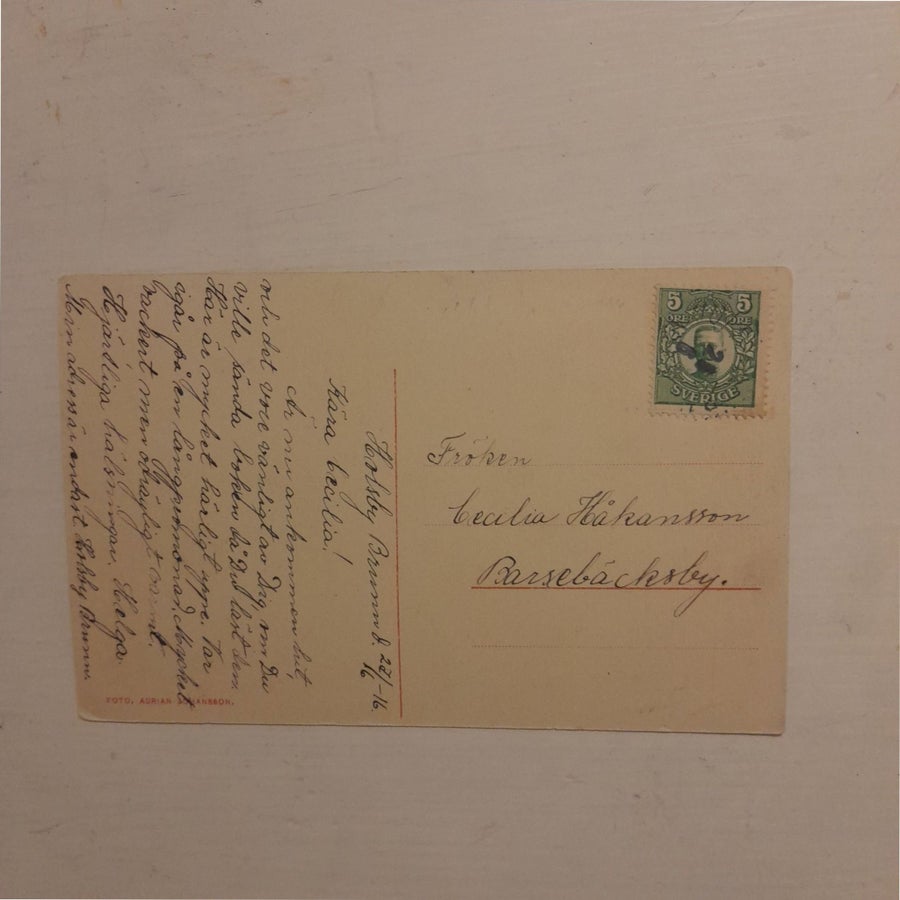 Holsby Brunn d. 22/6 -16.
Kära Cecilia!
Är nu ankommen hit,
och det vore vänligt av Dig, om Du
ville sända boken då Du läst dem.
Här är mycket härligt uppe. Var
igår på en långpromenad. Mycket
vackert men odrägligt varmt.
Hjärtliga hälsningar. Helga.
Min adress är endast Holsby Brunn.
FOTO, ADRIAN JOHANSSON.
5 5
ÖRE ÖRE
SVERIGE
Fröken
Cecilia Håkansson
Barsebäcksby.